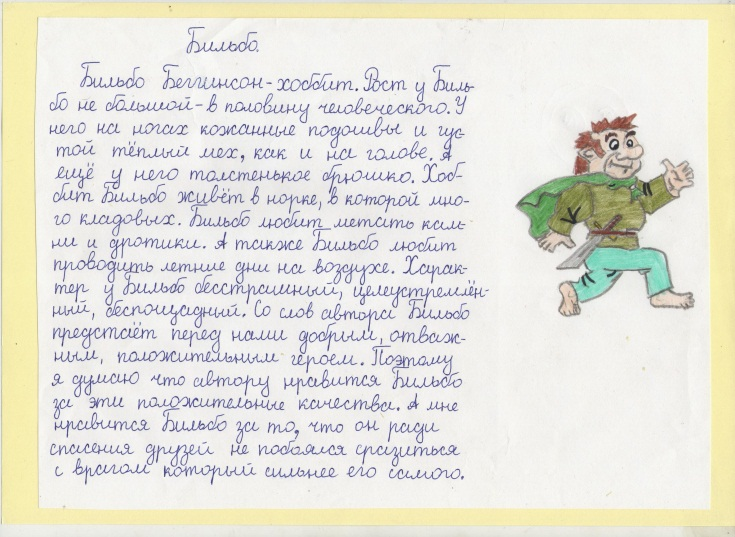 Бильбо.
Бильбо Беггинсон-хоббит. Рост у Биль-
бо не большой-в половину человеческого. У
него на ногах кожанные подошвы и гус-
той тёплый мех, как и на голове. А
ещё у него толстенькое брюшко. Хоб-
бит Бильбо живёт в норке, в которой мно-
го кладовых. Бильбо любит метать кам-
ни и дротики. А также Бильбо любит
проводить летние дни на воздухе. Харак-
тер у Бильбо бесстрашный, целеустремлён-
ный, беспощадный. Со слов автора Бильбо
предстаёт перед нами добрым, отваж-
ным, положительным героем. Поэтому
я думаю что автору нравится Бильбо
за эти положительные качества. А мне
нравится Бильбо за то, что он ради
спасения друзей не побоялся сразиться
с врагом который сильнее его самого.